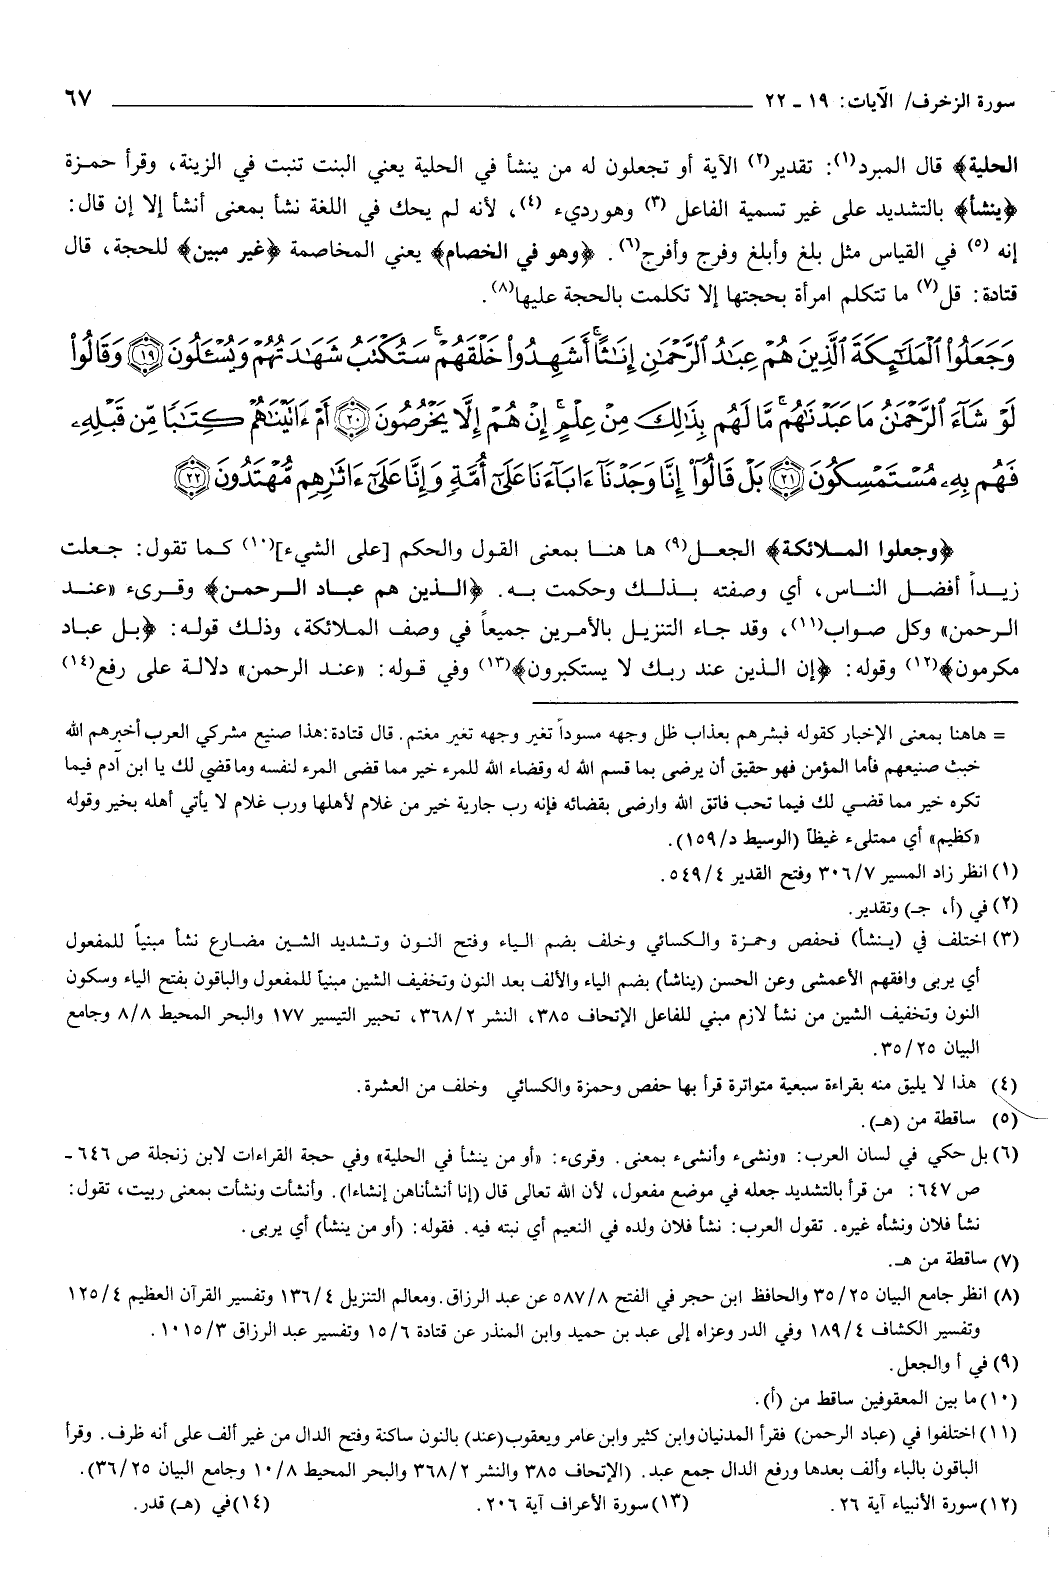 سورة الزخرف/ الآيات: ١٩ - ٢٢ ٦٧
الحلية﴾ قال المبرد(١): تقدير(٢) الآية أو تجعلون له من ينشأ في الحلية يعني البنت تنبت في الزينة، وقرأ حمزة
﴿ينشأ﴾ بالتشديد على غير تسمية الفاعل (٣) وهورديء (٤)، لأنه لم يحك في اللغة نشأ بمعنى أنشأ إلا إن قال:
إنه (٥) في القياس مثل بلغ وأبلغ وفرج وأفرج(٦). ﴿وهو في الخصام﴾ يعني المخاصمة ﴿غير مبين﴾ للحجة، قال
قتادة: قل(٧) ما تتكلم امرأة بحجتها إلا تكلمت بالحجة عليها(٨).
وَجَعَلُوا۟ ٱلْمَلَـٰٓئِكَةَ ٱلَّذِينَ هُمْ عِبَـٰدُ ٱلرَّحْمَـٰنِ إِنَـٰثًا ۚ أَشَهِدُوا۟ خَلْقَهُمْ ۚ سَتُكْتَبُ شَهَـٰدَتُهُمْ وَيُسْـَٔلُونَ ﴿١٩﴾ وَقَالُوا۟
لَوْ شَآءَ ٱلرَّحْمَـٰنُ مَا عَبَدْنَـٰهُم ۗ مَّا لَهُم بِذَٰلِكَ مِنْ عِلْمٍ ۖ إِنْ هُمْ إِلَّا يَخْرُصُونَ ﴿٢٠﴾ أَمْ ءَاتَيْنَـٰهُمْ كِتَـٰبًا مِّن قَبْلِهِۦ
فَهُم بِهِۦ مُسْتَمْسِكُونَ ﴿٢١﴾ بَلْ قَالُوٓا۟ إِنَّا وَجَدْنَآ ءَابَآءَنَا عَلَىٰٓ أُمَّةٍ وَإِنَّا عَلَىٰٓ ءَاثَـٰرِهِم مُّهْتَدُونَ ﴿٢٢﴾
﴿وجعلوا الملائكة﴾ الجعل(٩) ها هنا بمعنى القول والحكم [على الشيء](١٠) كما تقول: جعلت
زيداً أفضل الناس، أي وصفته بذلك وحكمت به. ﴿الذين هم عباد الرحمن﴾ وقرىء «عند
الرحمن» وكل صواب(١١)، وقد جاء التنزيل بالأمرين جميعاً في وصف الملائكة، وذلك قوله: ﴿بل عباد
مكرمون﴾(١٢) وقوله: ﴿إن الذين عند ربك لا يستكبرون﴾(١٣) وفي قوله: «عند الرحمن» دلالة على رفع(١٤)
= هاهنا بمعنى الإخبار كقوله فبشرهم بعذاب ظل وجهه مسوداً تغير وجهه تغير مغتم. قال قتادة:هذا صنيع مشركي العرب أخبرهم الله
خبث صنيعهم فأما المؤمن فهو حقيق أن يرضى بما قسم الله له وقضاء الله للمرء خير مما قضى المرء لنفسه وما قضي لك يا ابن آدم فيما
تكره خير مما قضي لك فيما تحب فاتق الله وارضى بقضائه فإنه رب جارية خير من غلام لأهلها ورب غلام لا يأتي أهله بخير وقوله
«كظيم» أي ممتلىء غيظاً (الوسيط د/١٥٩).
(١) انظر زاد المسير ٣٠٦/٧ وفتح القدير ٥٤٩/٤.
(٢) في (أ، جـ) وتقدير.
(٣) اختلف في (ينشأ) فحفص وحمزة والكسائي وخلف بضم الياء وفتح النون وتشديد الشين مضارع نشأ مبنياً للمفعول
أي يربى وافقهم الأعمشى وعن الحسن (يناشأ) بضم الياء والألف بعد النون وتخفيف الشين مبنياً للمفعول والباقون بفتح الياء وسكون
النون وتخفيف الشين من نشأ لازم مبني للفاعل الإتحاف ٣٨٥، النشر ٣٦٨/٢، تحبير التيسير ١٧٧ والبحر المحيط ٨/٨ وجامع
البيان ٣٥/٢٥.
(٤) هذا لا يليق منه بقراءة سبعية متواترة قرأ بها حفص وحمزة والكسائي وخلف من العشرة.
(٥) ساقطة من (هـ).
(٦) بل حكي في لسان العرب: «ونشىء وأنشىء بمعنى. وقرىء: «أو من ينشأ في الحلية» وفي حجة القراءات لابن زنجلة ص ٦٤٦ -
ص ٦٤٧: من قرأ بالتشديد جعله في موضع مفعول، لأن الله تعالى قال (إنا أنشأناهن إنشاءا). وأنشأت ونشأت بمعنى ربيت، تقول:
نشأ فلان ونشأه غيره. تقول العرب: نشأ فلان ولده في النعيم أي نبته فيه. فقوله: (أو من ينشأ) أي يربى.
(٧) ساقطة من هـ.
(٨) انظر جامع البيان ٣٥/٢٥ والحافظ ابن حجر في الفتح ٥٨٧/٨ عن عبد الرزاق.ومعالم التنزيل ١٣٦/٤ وتفسير القرآن العظيم ١٢٥/٤
وتفسير الكشاف ١٨٩/٤ وفي الدر وعزاه إلى عبد بن حميد وابن المنذر عن قتادة ١٥/٦ وتفسير عبد الرزاق ١٠١٥/٣.
(٩) في أ والجعل.
(١٠) ما بين المعقوفين ساقط من (أ).
(١١) اختلفوا في (عباد الرحمن) فقرأ المدنيان وابن كثير وابن عامر ويعقوب(عند) بالنون ساكنة وفتح الدال من غير ألف على أنه ظرف. وقرأ
الباقون بالباء وألف بعدها ورفع الدال جمع عبد. (الإتحاف ٣٨٥ والنشر ٣٦٨/٢ والبحر المحيط ١٠/٨ وجامع البيان ٣٦/٢٥).
(١٢) سورة الأنبياء آية ٢٦. (١٣) سورة الأعراف آية ٢٠٦. (١٤) في (هـ) قدر.